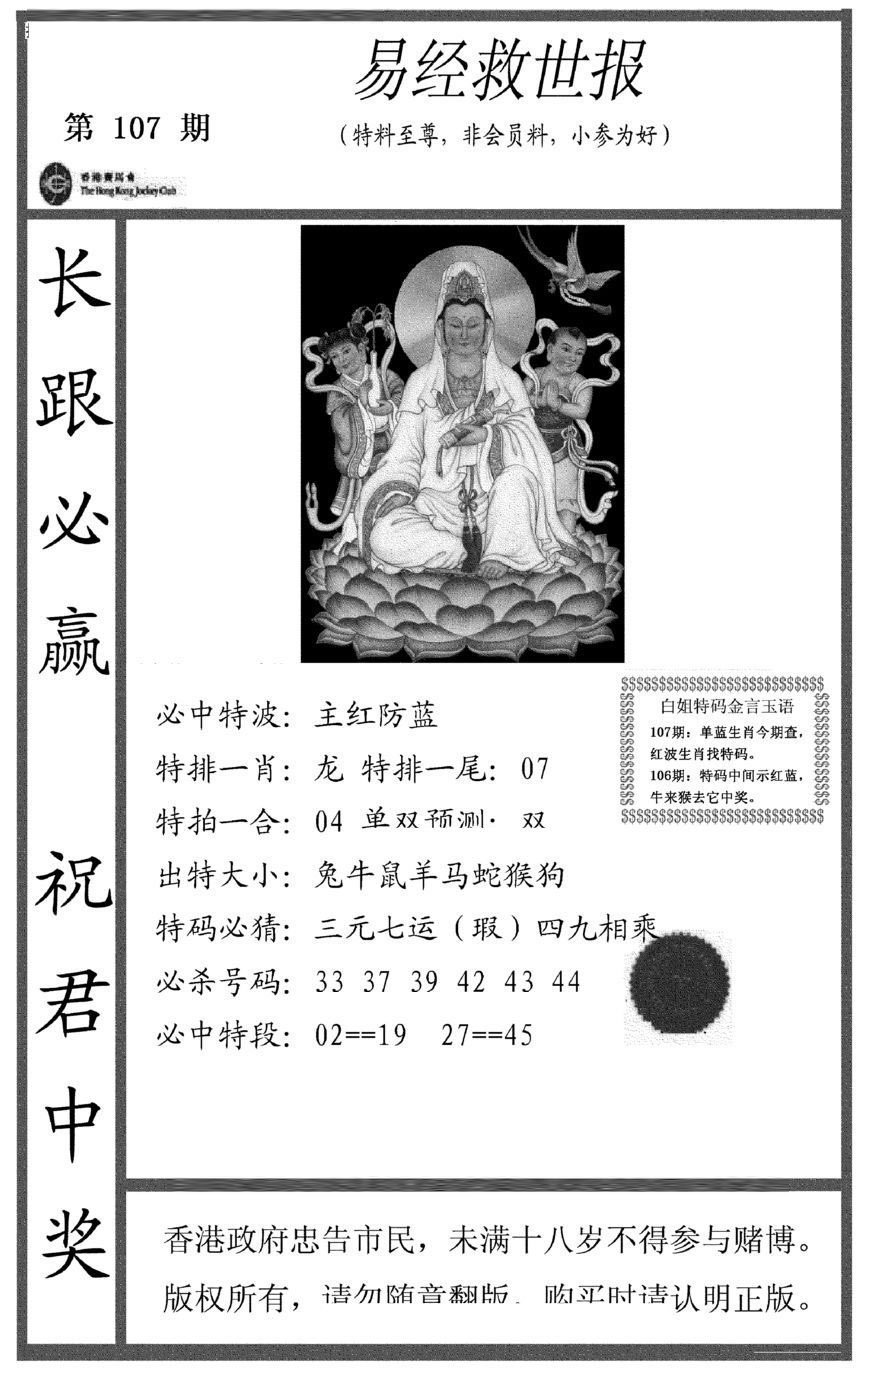 易经救世报
第 107 期
（特料至尊，非会员料，小参为好）
香港赛马会
The Hong Kong Jockey Club
长跟必赢 祝君中奖
必中特波：主红防蓝
特排一肖：龙 特排一尾：07
特拍一合：04 单双预测： 双
出特大小：兔牛鼠羊马蛇猴狗
特码必猜：三元七运（瑕）四九相乘
必杀号码：33 37 39 42 43 44
必中特段：02==19 27==45
$$$$$$$$$$$$$$$$$$$$$$$$$$$
白姐特码金言玉语
107期：单蓝生肖今期查，
红波生肖找特码。
106期：特码中间示红蓝，
牛来猴去它中奖。
$$$$$$$$$$$$$$$$$$$$$$$$$$$
香港政府忠告市民，未满十八岁不得参与赌博。
版权所有，请勿随意翻版。购买时请认明正版。